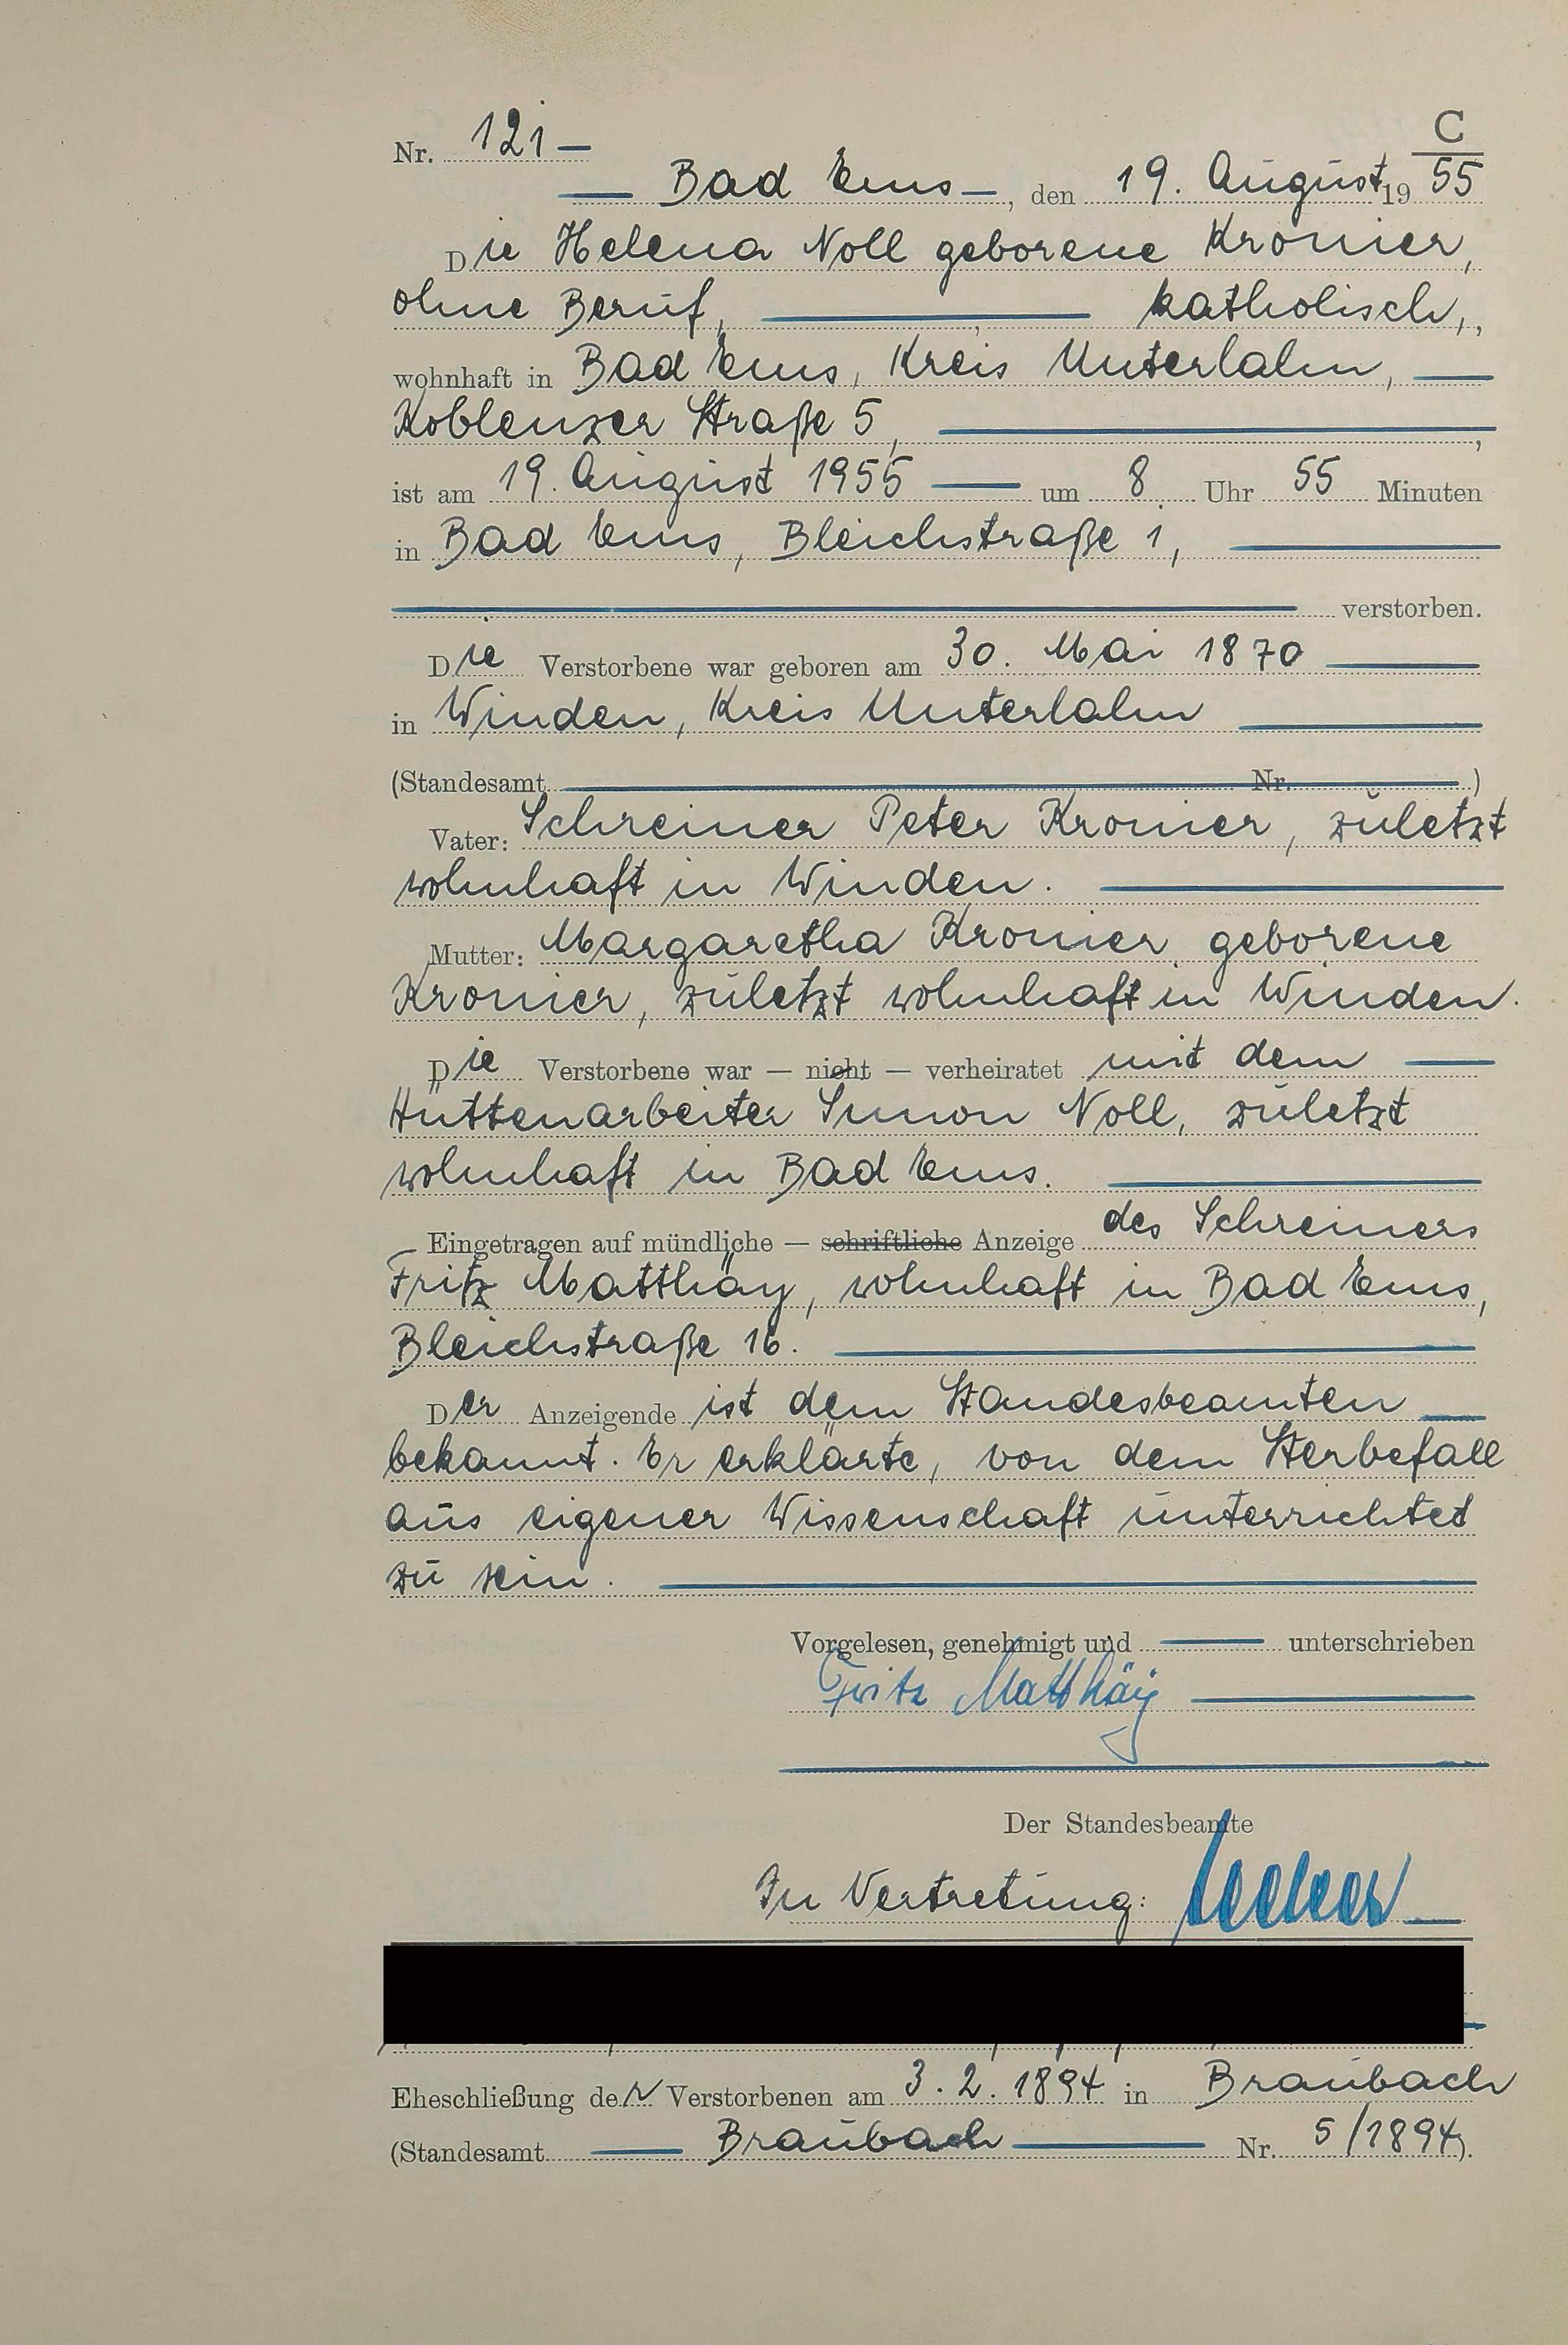 C
Nr. 121 —
— Bad Ems —, den 19. August 1955
Die Helena Noll geborene Kromer,
ohne Beruf, — katholisch,
wohnhaft in Bad Ems, Kreis Unterlahn, —
Koblenzer Straße 5, —
ist am 19. August 1955 — um 8 Uhr 55 Minuten
in Bad Ems, Bleichstraße 1, —
— verstorben.
Die Verstorbene war geboren am 30. Mai 1870 —
in Winden, Kreis Unterlahn —
(Standesamt — Nr. —)
Vater: Schreiner Peter Kromer, zuletzt
wohnhaft in Winden. —
Mutter: Margaretha Kromer, geborene
Kromer, zuletzt wohnhaft in Winden.
Die Verstorbene war — nicht — verheiratet mit dem —
Hüttenarbeiter Simon Noll, zuletzt
wohnhaft in Bad Ems. —
Eingetragen auf mündliche — schriftliche Anzeige des Schreiners
Fritz Matthäy, wohnhaft in Bad Ems,
Bleichstraße 16. —
Der Anzeigende ist dem Standesbeamten —
bekannt. Er erklärte, von dem Sterbefall
aus eigener Wissenschaft unterrichtet
zu sein. —
Vorgelesen, genehmigt und — unterschrieben
Fritz Matthäy —
Der Standesbeamte
In Vertretung:
Eheschließung der Verstorbenen am 3.2.1894 in Braubach
(Standesamt — Braubach — Nr. 5/1894).